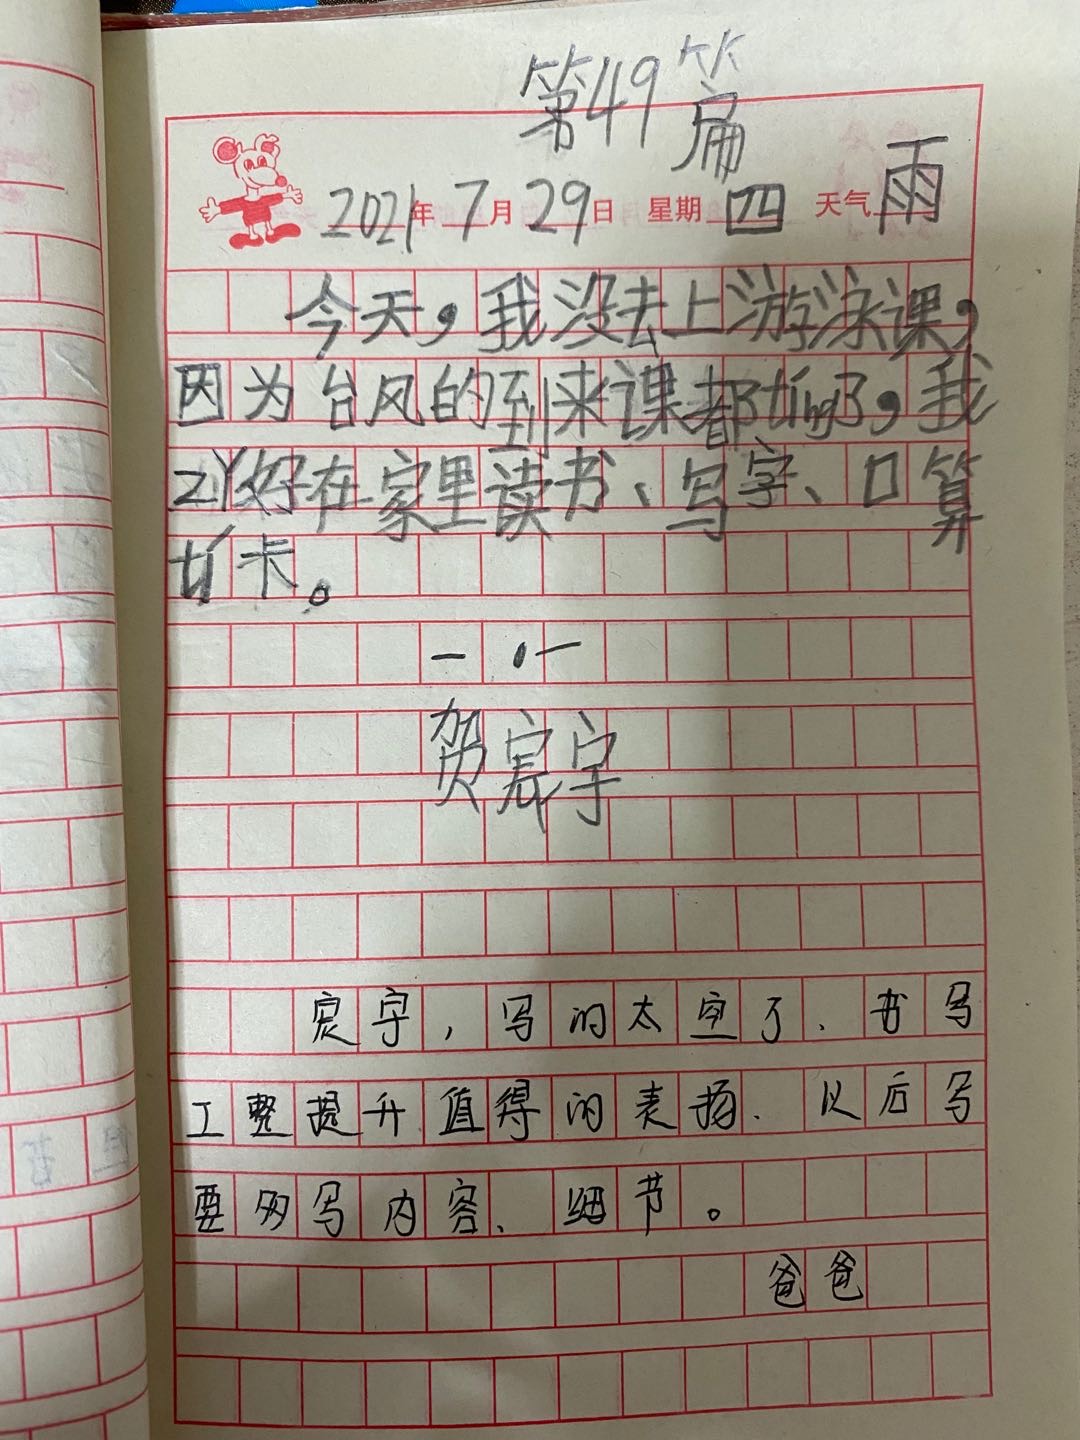 第49篇
2021年7月29日 星期四 天气雨
今天，我没去上游泳课，
因为台风的到来课都tíng了，我
好在家里读书、写字、口算
tí卡。
贺宸宇
宸宇，写的太空了、书写
工整提升值得的表扬、以后写
要多写内容、细节。
爸爸